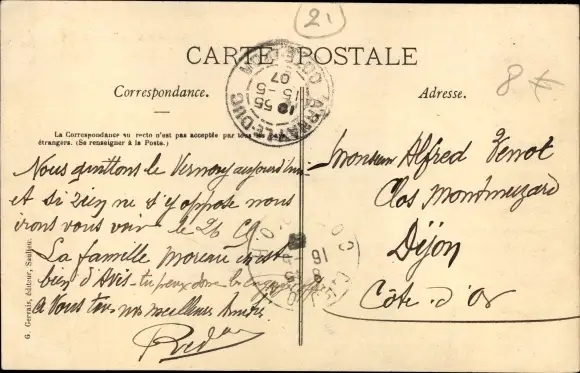 21
CARTE POSTALE
8 €
Correspondance.
Adresse.
ARNAY-LE-DUC
CÔTE-D'OR
55
15 - 5
07
La Correspondance au recto n'est pas acceptée par tous les pays
étrangers. (Se renseigner à la Poste.)
Nous quittons le Vernoy aujourd'hui
et si rien ne s'y oppose nous
irons vous voir le 26 Ct
La famille Moreau est
bien d'Avis - tu peux donc
A Vous tous nos meilleures Amitiés
Monsieur Alfred
Clos Montmuzard
Dijon
Côte-d'Or
16
G. Gervais, éditeur, Saulieu.